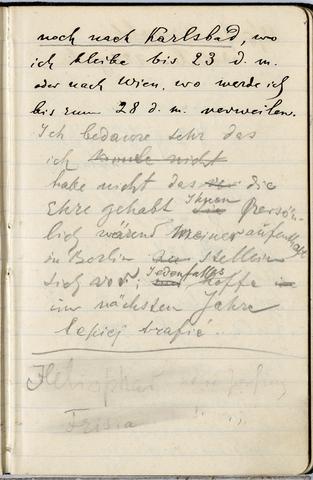 noch nach Karlsbad, wo
ich bleibe bis 23 d. m.
oder nach Wien, wo werde ich
bis zum 28 d. m. verweilen.
Ich bedaure sehr das
ich konnte nicht
habe nicht das die
Ehre gehabt Ihnen Persön-
lich wärend meiner aufenthalt
in Berlin zu stellen
sich vor; Jedenfalls hoffe
im nächsten Jahre
lepiej trafić.
Frisia